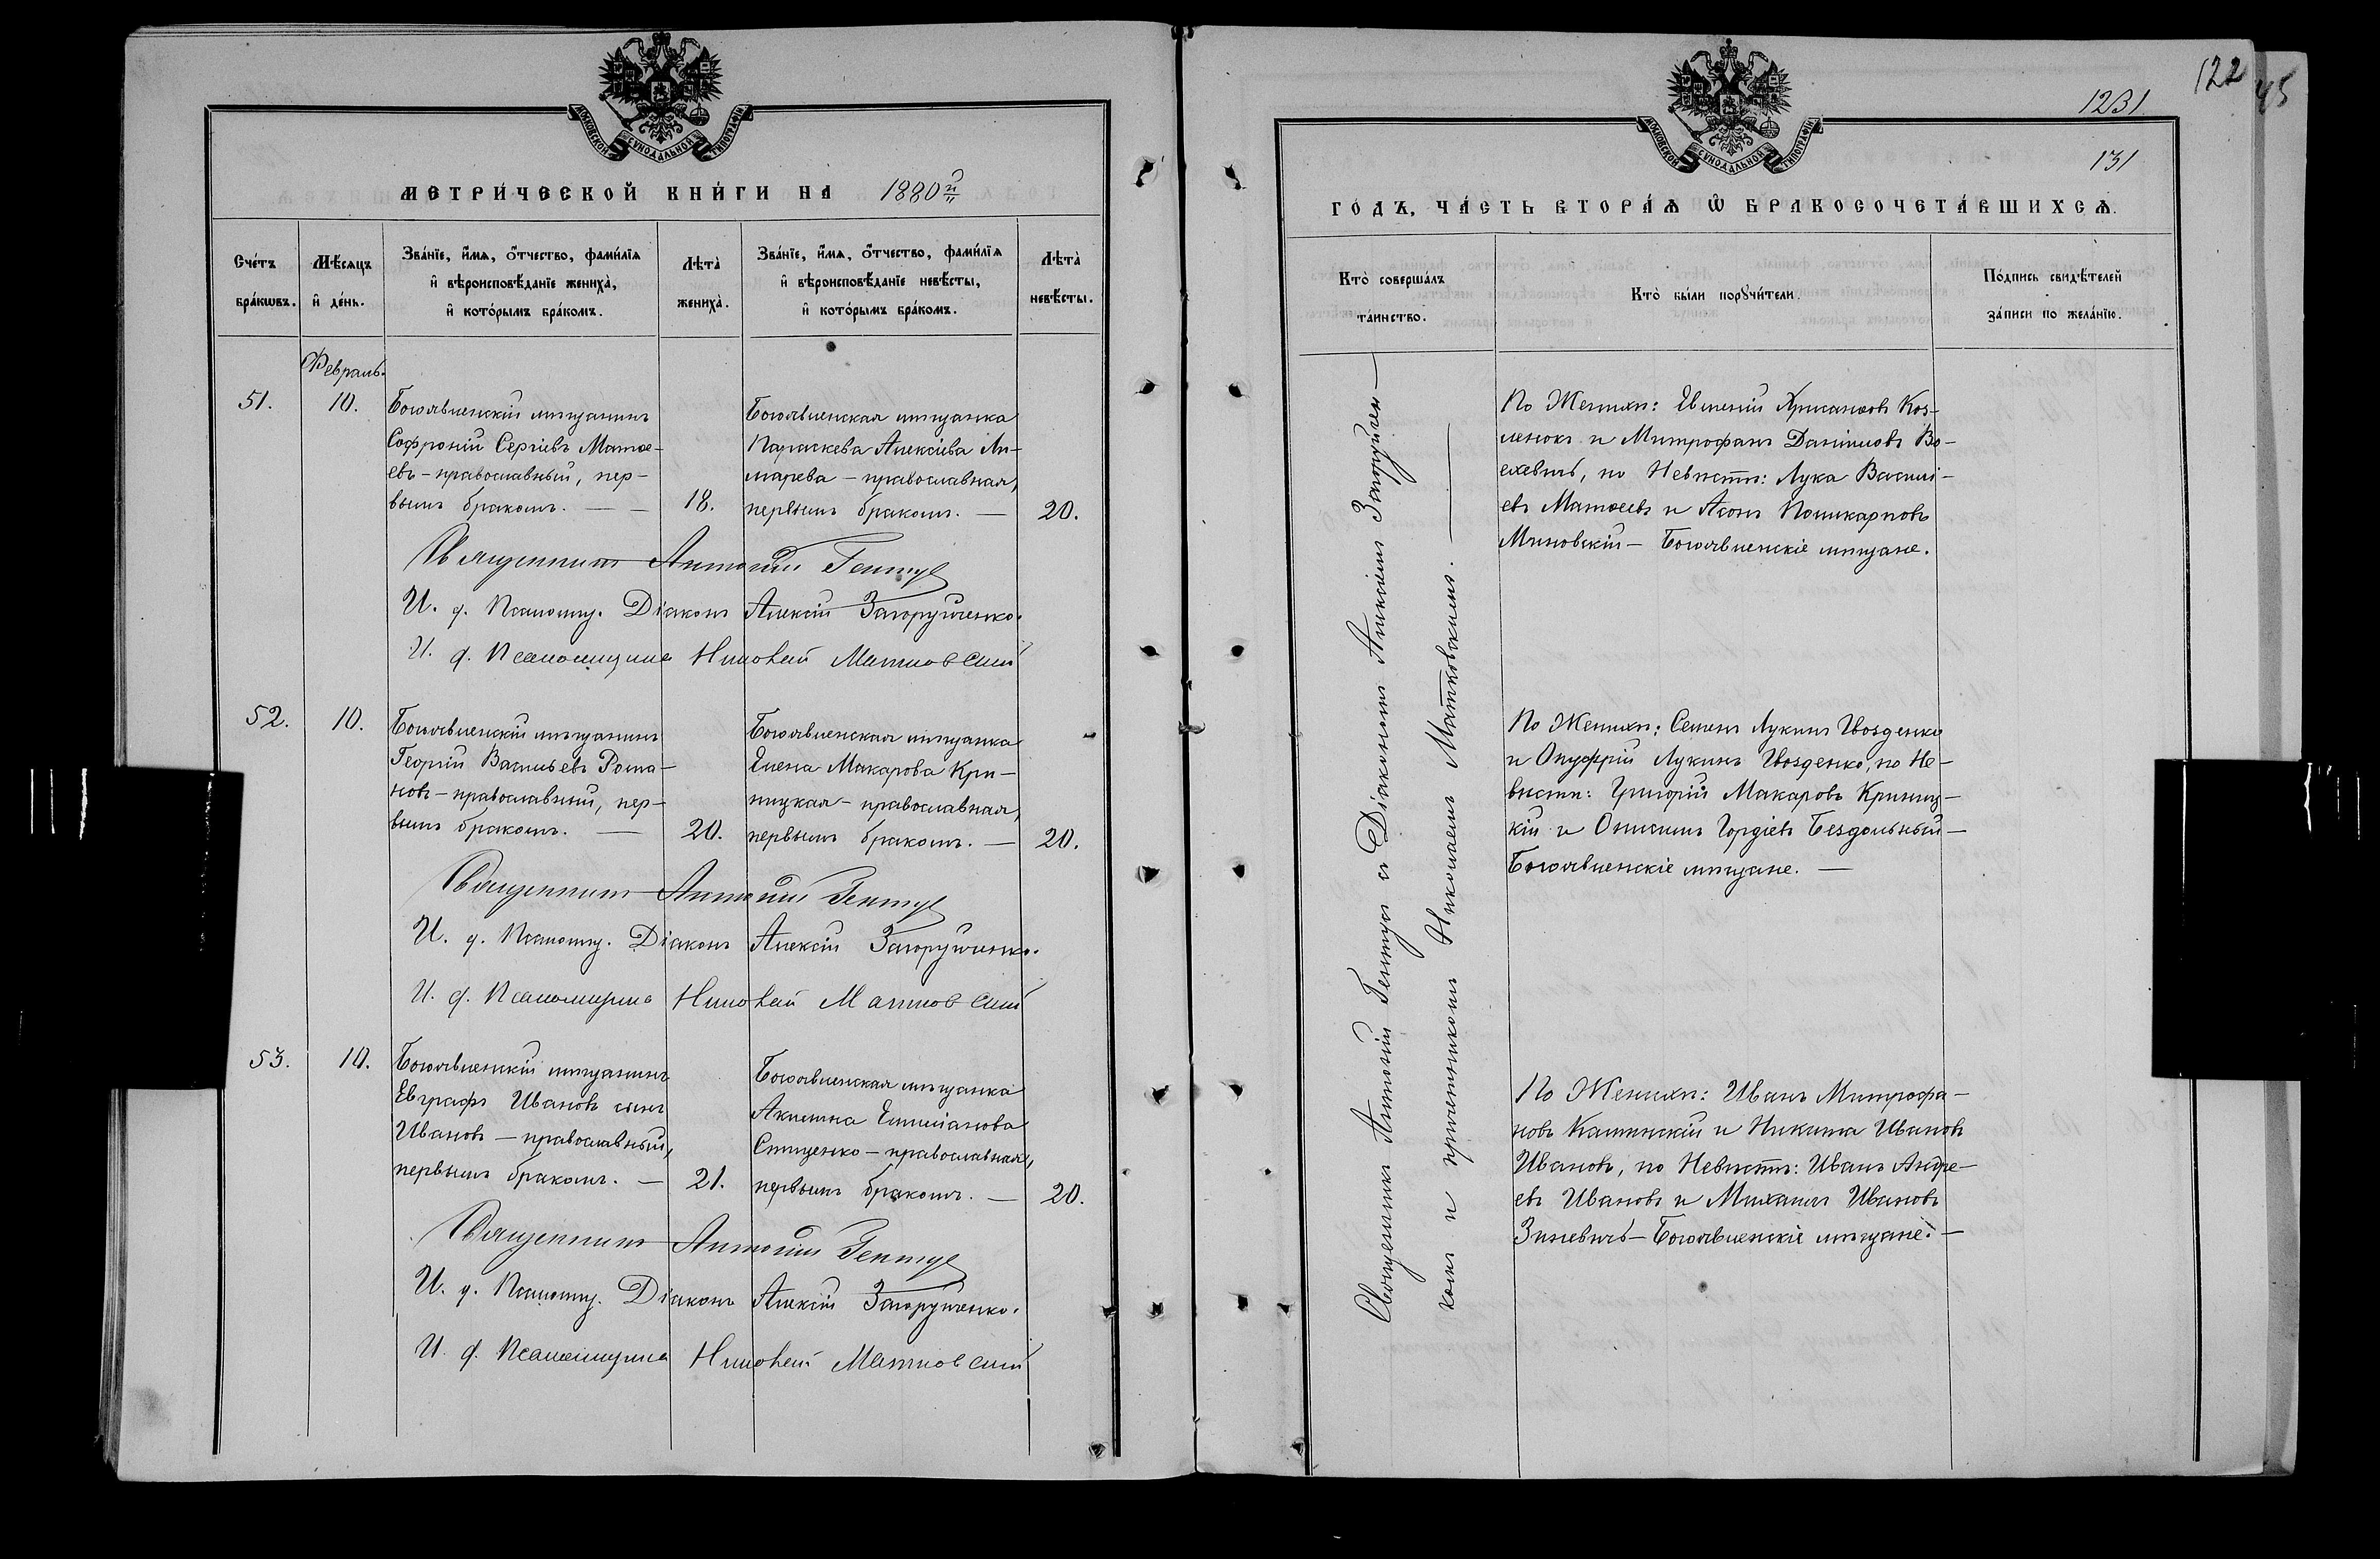 МОСКОВСКОЙ СѴНОДАЛЬНОЙ ТИПОГРАФІИ
МЕТРИ́ЧЕСКОЙ КНИ́ГИ НА 1880й
Сче́тъ бра́кωвъ.
Мѣ́сяцъ и҆ де́нь.
Зва́нїе, и҆́мѧ, ѻ҆́тчество, фами́лїѧ
и҆ вѣроисповѣ́данїе жениха̀,
и҆ кото́рымъ бра́комъ.
Лѣта̀ жениха̀.
Зва́нїе, и҆́мѧ, ѻ҆́тчество, фами́лїѧ
и҆ вѣроисповѣ́данїе невѣ́сты,
и҆ кото́рымъ бра́комъ.
Лѣта̀ невѣ́сты.
Февраль.
51.
10.
Богоявленскій мѣщанинъ
Софроній Сергіевъ Матве-
евъ - православный, пер-
вымъ бракомъ. — —
18.
Богоявленская мѣщанка
Параскева Алексіева Ли-
марева - православная,
первымъ бракомъ. —
20.
Священникъ Антоній Гентуд
И. д. Псаломщ. Діаконъ Алексій Загоруйченко.
И. д. Псаломщика Николай Матковскій
52.
10.
Богоявленскій мѣщанинъ
Георгій Васильевъ Рома-
новъ - православный, пер-
вымъ бракомъ. —
20.
Богоявленская мѣщанка
Елена Макарова Кри-
ницкая - православная,
первымъ бракомъ. —
20.
Священникъ Антоній
И. д. Псаломщ. Діаконъ Алексій Загоруйченко.
И. д. Псаломщика Николай Матковскій
53.
10.
Богоявленскій мѣщанинъ
Евграфъ Ивановъ сынъ
Ивановъ - православный,
первымъ бракомъ. —
21.
Богоявленская мѣщанка
Акилина Емиліанова
Стиценко - православная,
первымъ бракомъ. —
20.
Священникъ Антоній
И. д. Псаломщ. Діаконъ Алексій Загоруйченко.
И. д. Псаломщика Николай Матковскій
122
45
1231.
131
МОСКОВСКОЙ СѴНОДАЛЬНОЙ ТИПОГРАФІИ
ГО́ДЪ, ЧА́СТЬ ВТОРА́Ѧ Ѽ БРАКОСОЧЕТА́ВШИХСѦ.
Кто̀ соверша́лъ
та́инство.
Кто̀ бы́ли порꙋчи́тели.
По́дпись свидѣ́телей
за́писи по жела́нїю.
Священникъ Антоній съ Діакономъ Алексіемъ Загоруйчен—
комъ и причетникомъ Николаемъ Матковскимъ. —
По Женихѣ: Евменій Хрисанѳовъ Коз-
ленокъ и Митрофанъ Даніиловъ Во-
ехевичъ, по Невѣстѣ: Лука Василі-
евъ Матвеевъ и Агонъ Поликарповъ
Миновскій - Богоявленскіе мѣщане.
По Женихѣ: Семенъ Лукинъ Гвозденко
и Онуфрій Лукинъ Гвозденко, по Не-
вѣстѣ: Григорій Макаровъ Криниц-
кій и Онисимъ Гордіевъ Бездольный —
Богоявленскіе мѣщане. —
По Женихѣ: Иванъ Митрофа-
новъ Калинскій и Никита Ивановъ
Ивановъ, по Невѣстѣ: Иванъ Андре-
евъ Ивановъ и Михаилъ Ивановъ
Зиневичъ - Богоявленскіе мѣщане. —